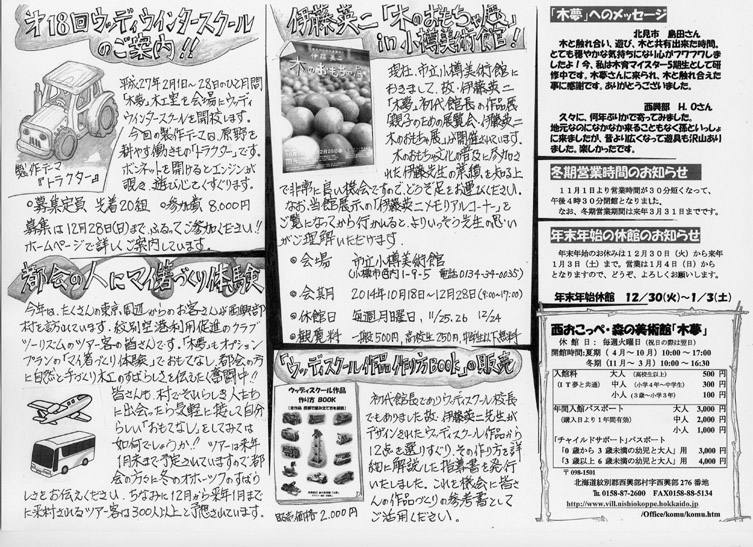 才18回ウッディウィンタースクール
のご案内!!
平成27年2月1日〜28日のひと月間
「木夢」木工室を会場にウッディ
ウィンタースクールを開校します。
今回の製作テーマは、原野を
耕やす働きもの「トラクター」です。
ボンネットを開けるとエンジンが
製作テーマ
『トラクター』
◎募集定員 先着20組 ◎参加費 8,000円
募集は12月28日(日)まで、ふるってご参加ください!!
ホームページで詳しくご案内しています。
都会の人にマイ箸づくり体験
今年は、たくさんの東京周辺からのお客さんが西興部
村を訪れています。紋別空港利用促進のクラブ
ツーリズムのツアー客の皆さんです。「木夢」もオプション
プランの「マイ箸づくり体験」でおもてなし、都会の方
に自然と手づくり木工のすばらしさを伝えたく奮闘中!!
皆さんも、村でそれらしき人たち
に出会ったら気軽に接して自分
らしい「おもてなし」をしてみては
如何でしょうか!! ツアーは来年
1月末まで予定されていますので都
会の方々に冬のオホーツクのすばら
しさをお伝えください。ちなみに12月から来年1月まで
に来村されるツアー客は300人以上と予想されています。
伊藤英二「木のおもちゃ展」
in 小樽美術館!
伊藤英二
木のおもちゃ展
現在、市立小樽美術館に
おきまして、故・伊藤英二
「木夢」初代館長の作品展
「親子のための展覧会・伊藤英二
木のおもちゃ展」が開催されています。
木のおもちゃの普及に尽力さ
れた伊藤先生の業績を知る上
で非常に良い機会ですので、どうぞ足をお運びください。
なお、当館展示の「伊藤英二メモリアルコーナー」を
ご覧になってから行かれると、よりいっそう先生の思い
がご理解いただけます。
◎会場 市立小樽美術館
(小樽市色内1-9-5 電話0134-34-0035)
◎会期 2014年10月18日〜12月28日(9:00〜17:00)
◎休館日 毎週月曜日、11/25.26 12/24
◎観覧料 一般500円,高校生250円,中学生以下無料
「ウッディスクール作品 作り方BOOK」の販売
ウッディスクール作品
作り方 BOOK
初代館長でありウッディスクール校長
でもありました故・伊藤英二先生が
デザインされたウッディスクール作品から
12点を選りすぐり、その作り方を詳
細に解説した指導書を発行
いたしました。これを機会に皆さ
んの作品づくりの参考書として
ご活用ください。
販売価格 2,000円
「木夢」へのメッセージ
北見市 島田さん
木と触れ合い、遊び、木と共有出来た時間。
とても穏やかな気持ちになり心がフワフワしま
したよ!今、私は木育マイスター5期生として研
修中です。木夢さんに来られ、木と触れ合えた
事に感謝です。ありがとうございました。
西興部 H.Oさん
久々に、何年ぶりかで寄ってみました。
地元なのになかなか来ることもなく孫といっしょ
に来ましたが、昔より広くなって遊具も沢山あり
ました。楽しかったです。
冬期営業時間のお知らせ
11月1日より営業時間が30分短くなって、
午後4時30分閉館となりました。
なお、冬期営業期間は来年3月31日までです。
年末年始の休館のお知らせ
年末年始のお休みは12月30日(火)から来年
1月3日(土)まで。営業は1月4日(日)から
となりますので、どうぞ、よろしくお願いします。
年末年始休館 12/30(火)〜1/3(土)
西おこっぺ・森の美術館「木夢」
休館日:毎週火曜日(祝日の際は翌日)
開館時間:夏期(4月〜10月)10:00〜17:00
冬期(11月〜3月)10:00〜16:30
入館料 大人(高校生以上) 500円
(IT夢と共通) 中人(小学4年〜中学生) 300円
小人(3歳〜小学3年) 100円
年間入館パスポート 大人 3,000円
(購入日より1年間有効) 中人 2,000円
小人 1,000円
「チャイルドサポート」パスポート
「0歳から3歳未満の幼児と大人」用 3,000円
「3歳以上6歳未満の幼児と大人」用 4,000円
〒098-1501
北海道紋別郡西興部村字西興部276番地
℡ 0158-87-2600 FAX0158-88-5134
http://www.vill.nishiokoppe.hokkaido.jp
/Office/komu/komu.htm